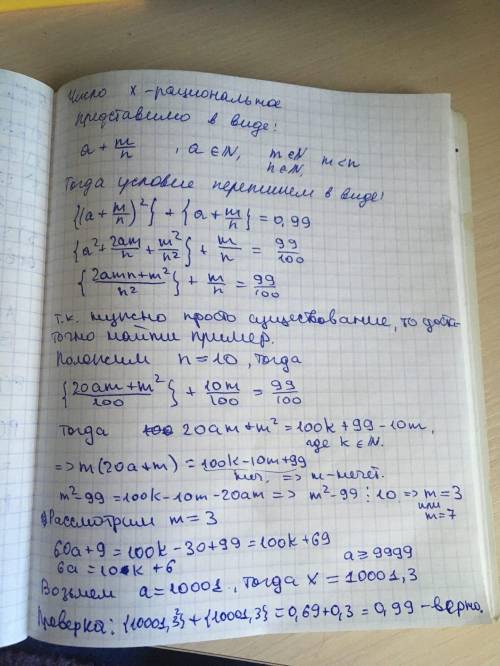 Число x-рациональное
представимо в виде:
a + m/n , a ∈ N, m ∈ N, n ∈ N, m < n
Тогда условие перепишем в виде:
{(a + m/n)²} + {a + m/n} = 0,99
{a² + 2am/n + m²/n²} + m/n = 99/100
{(2amn + m²)/n²} + m/n = 99/100
т.к. нужно просто существование, то доста-
точно найти пример.
Положим n = 10, тогда
{(20am + m²)/100} + 10m/100 = 99/100
Тогда 20am + m² = 100k + 99 - 10m,
где k ∈ N.
=> m(20a + m) = 100k - 10m + 99
неч. => m - нечет.
m² - 99 = 100k - 10m - 20am => m² - 99 ⋮ 10 => m = 3
или
m = 7
Рассмотрим m = 3
60a + 9 = 100k - 30 + 99 = 100k + 69
6a = 10k + 6
a ≥ 9999
Возьмем a = 10001, тогда x = 10001,3
Проверка: {10001,3²} + {10001,3} = 0,69 + 0,3 = 0,99 - верно.